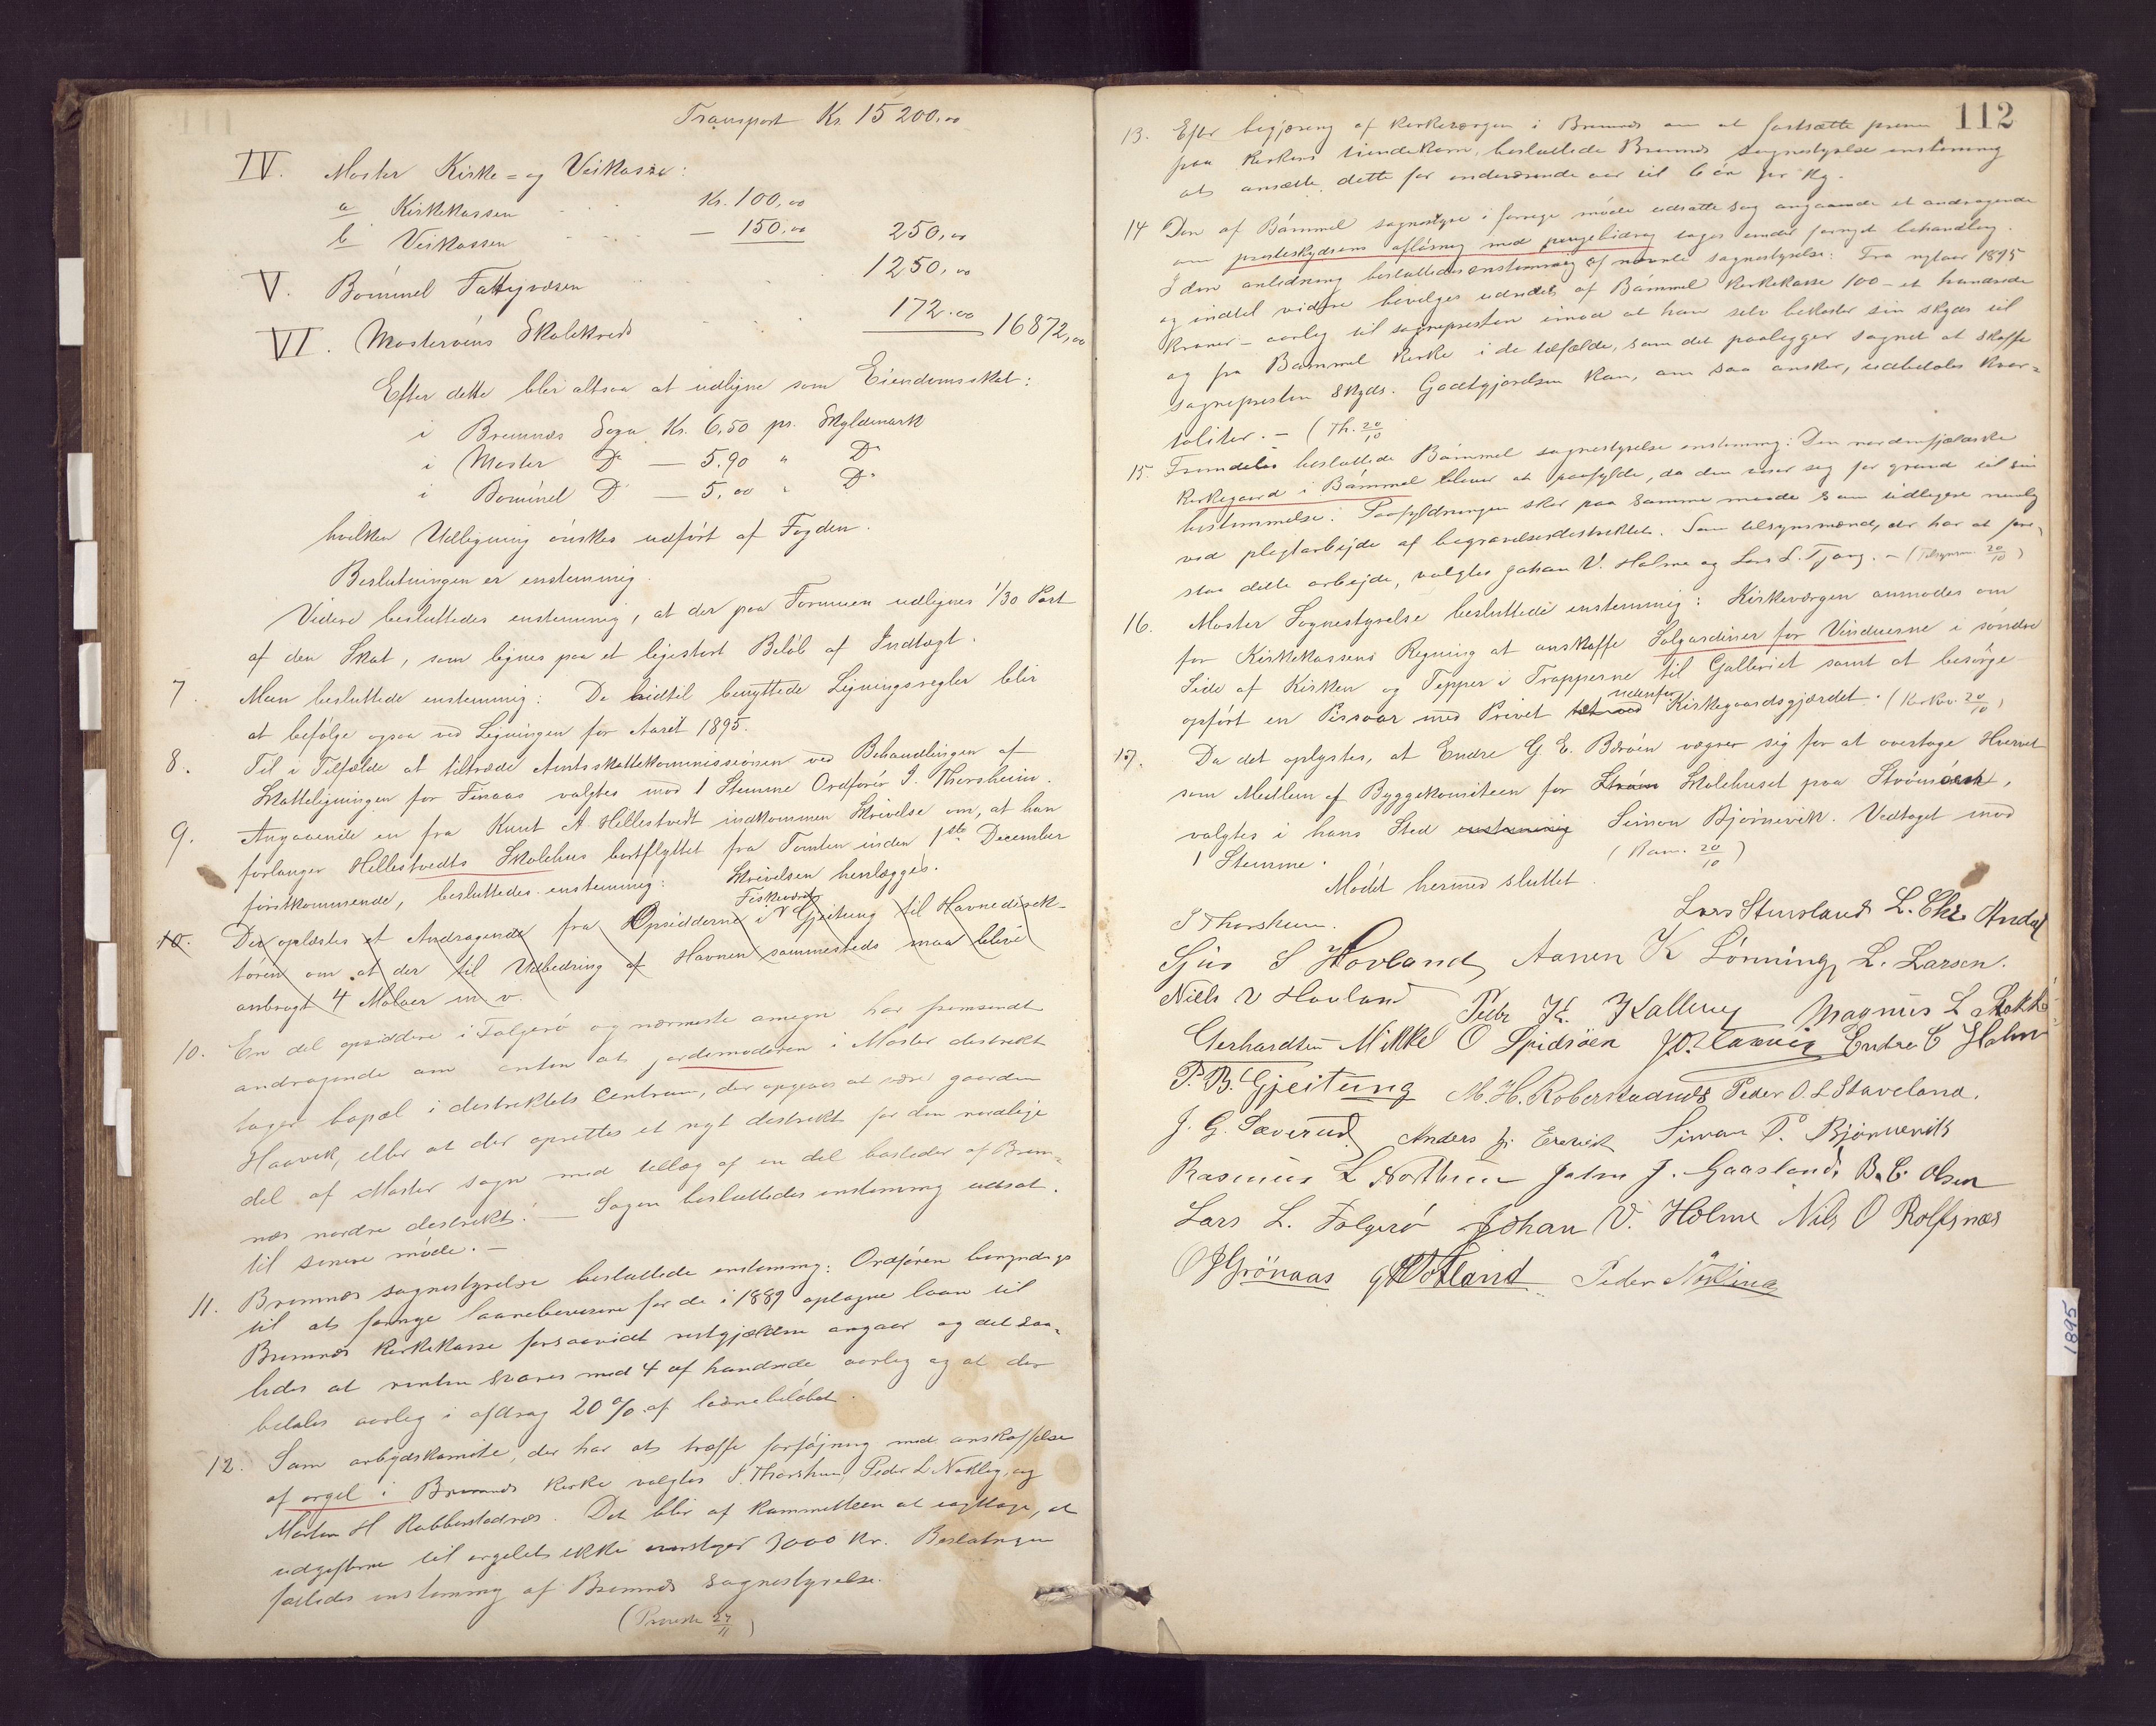 Transport Kr. 15 200,00
IV. Moster Kirke- og Veikasse:
a Kirkekassen Kr. 100,00
b Veikassen — 150,00 250,00
V. Bömmel Fattigvæsen 1250,00
VI. Mosterøens Skolekreds 172.00 16872,00
Efter dette blir altsaa at udligne som Eiendomsskat:
i Bremnes Sogn Kr. 6,50 pr. Skyldmark
i Moster Do — 5.90 " Do
i Bommel Do — 5,00 " Do
hvilken Udligning önskes udfört af Fogden.
Beslutningen er enstemmig.
Videre besluttedes enstemmig, at der paa Formuen udlignes 1/30 Part
af den Skat, som lignes paa et ligestort Belöb af Indtægt.
7. Man besluttede enstemmig: De hidtil benyttede Ligningsregler blir
at befölge ogsaa ved Ligningen for Aaret 1895.
8. Til i Tilfælde at tiltræde Amtsskattekommissionen ved Behandlingen af
Skatteligningen for Finaas valgtes mod 1 Stemme Ordförer I. Thorsheim.
9. Angaaende en fra Knut A Hellestvedt indkommen Skrivelse om, at han
forlanger Hellestvedts Skolehus bortflyttet fra Tomten inden 1ste December
förstkommende, besluttedes enstemmig: Skrivelsen henlægges.
10. Der oplæstes et Andragende fra Opsidderne i Fiskeværet Gjeitung til Havnedirek-
tören om at der til Udbedring af Havnen sammesteds maa blive
anbragt 4 Moloer m. v.
10. En del opsiddere i Folgerö og nærmeste omegn har fremsendt
andragende om enten at jordemoderen i Moster destrekt
tager bopæl i destriktets Centrum, der opgives at være gaarden
Haavik, eller at der oprettes et nyt destrekt for den nordlige
del af Moster sogn med tillæg af en del bosteder af Brem-
nes nordre destrekt. — Sagen besluttedes enstemmig udsat
til senere møde. —
11. Bremnes sognestyrelse besluttede enstemmig: Ordføren bemyndiges
til at fornye laanebeviserne for de i 1889 optagne laan til
Bremnes Kirkekasse forsaavidt restgjælden angaar og det saa-
ledes at renten svares med 4 af hundrede aarlig og at der
betales aarlig i afdrag 20 % af laanebeløbet.
12. Som arbejdskomite, der har at træffe forføjning med anskaffelse
af orgel i Bremnes Kirke valgtes I. Thorsheim, Peder L Nøkling og
Morten H Robberstadnes. Det blir af Kommitteen at iagttage, at
udgifterne til orgelet ikke overstiger 3000 kr. Beslutningen
fattedes enstemmig af Bremnes sognestyrelse.
(Provsten 27/11)
112
13. Efter begjæring af Kirkeværgen i Bremnes om at fastsætte prisen
paa Kirkens tiendekorn, besluttede Bremnes sognestyrelse enstemmig
at ansætte dette for indeværende aar til 6 øre pr Kg.
14 Den af Bømmel sognestyre i forrige møde udsatte sag angaaende et andragende
om presteskydsens afløsning med pengebidrag toges under fornyet behandling.
I den anledning besluttedes enstemmig af nævnte sognestyrelse: Fra nytaar 1895
og indtil videre bevilges udredet af Bømmel Kirkekasse 100 – et hundrede
kroner – aarlig til sognepresten imod at han selv bekoster sin skyds til
og fra Bømmel Kirke i de tilfælde, som det paaligger sognet at skaffe
sognepresten skyds. Godtgjørelsen kan, om saa ønskes, udbetales kvar-
taliter. – (Th. 20/10
15. Fremdeles besluttede Bømmel sognestyrelse enstemmig: Den nordenfjælske
Kirkegaard i Bømmel bliver at paafylde, da den viser sig for grund til sin
bestemmelse. Paafyldningen sker paa samme maade som tidligere nemlig
ved pligtarbejde af begravelsesdestriktet. Som tilsynsmænd, der har at fore-
staa dette arbejde, valgtes Johan V. Holme og Lars L. Tjong. – (Tilsynsm. 20/10)
16. Moster Sognestyrelse besluttede enstemmig: Kirkeværgen anmodes om
for Kirkekassens Regning at anskaffe Solgardiner for Vinduerne i söndre
Side af Kirken og Tepper i Trapperne til Galleriet samt at besörge
opfört en Pissoar med Privet tæt ved udenfor Kirkegaardsgjærdet. (Kirkev. 20/10)
17. Da det oplystes, at Endre G E. Børöen vægrer sig for at overtage Hvervet
som Medlem af Byggekomiteen for Ström Skolehuset paa Strömöen,
valgtes i hans Sted enstemmig Simon Björnevik. Vedtaget mod
1 Stemme. (Kom. 20/10)
Mödet hermed sluttet.
I Thorsheim. Lars Stensland L. Chr. Andal
Sjur S Hovland Aanen K Lønning L. Larsen.
Niels V Hovland Peder K. Kallevig Magnus L
Gerhardsen Mikkel O Spidsöen Endre C Holm
P. B. Gjeitung M. H. Roberstadnes Peder O. L Staveland.
J. G. Sæverud. Anders J. Simon P. Bjørnevik
Rasmus L John J. Gaasland. B. C. Olsen
Lars L. Folgerö Johan V. Holme Nils O Rolfsnes
O J Grönaas Peder Nökling
1895